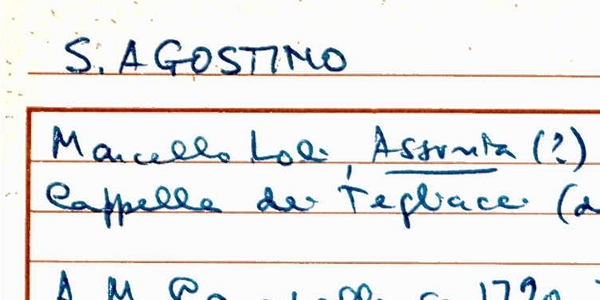 S. AGOSTINO
Marcello Loli, Assunta (?)
Cappella dei Tegliacci (d
A. M.